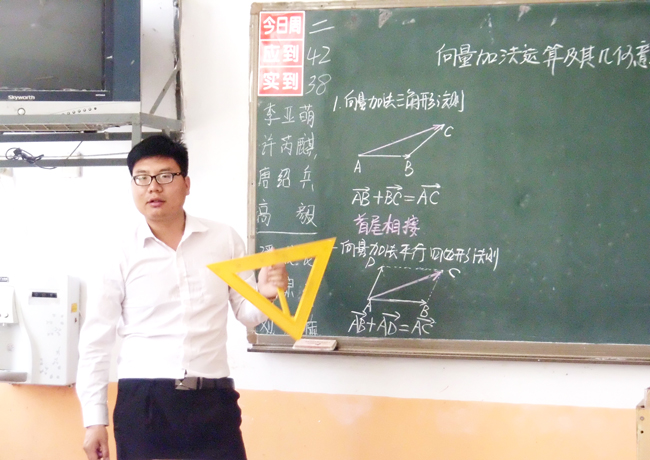 Skyworth
今日周 二
应到 42
实到 38
李亚萌
许芮麒
唐绍兵
高毅
向量加法运算及其几何意
1.向量加法三角形法则
A B C
AB+BC=AC
首尾相接
向量加法平行四边形法则
D C
A B
AB+AD=AC